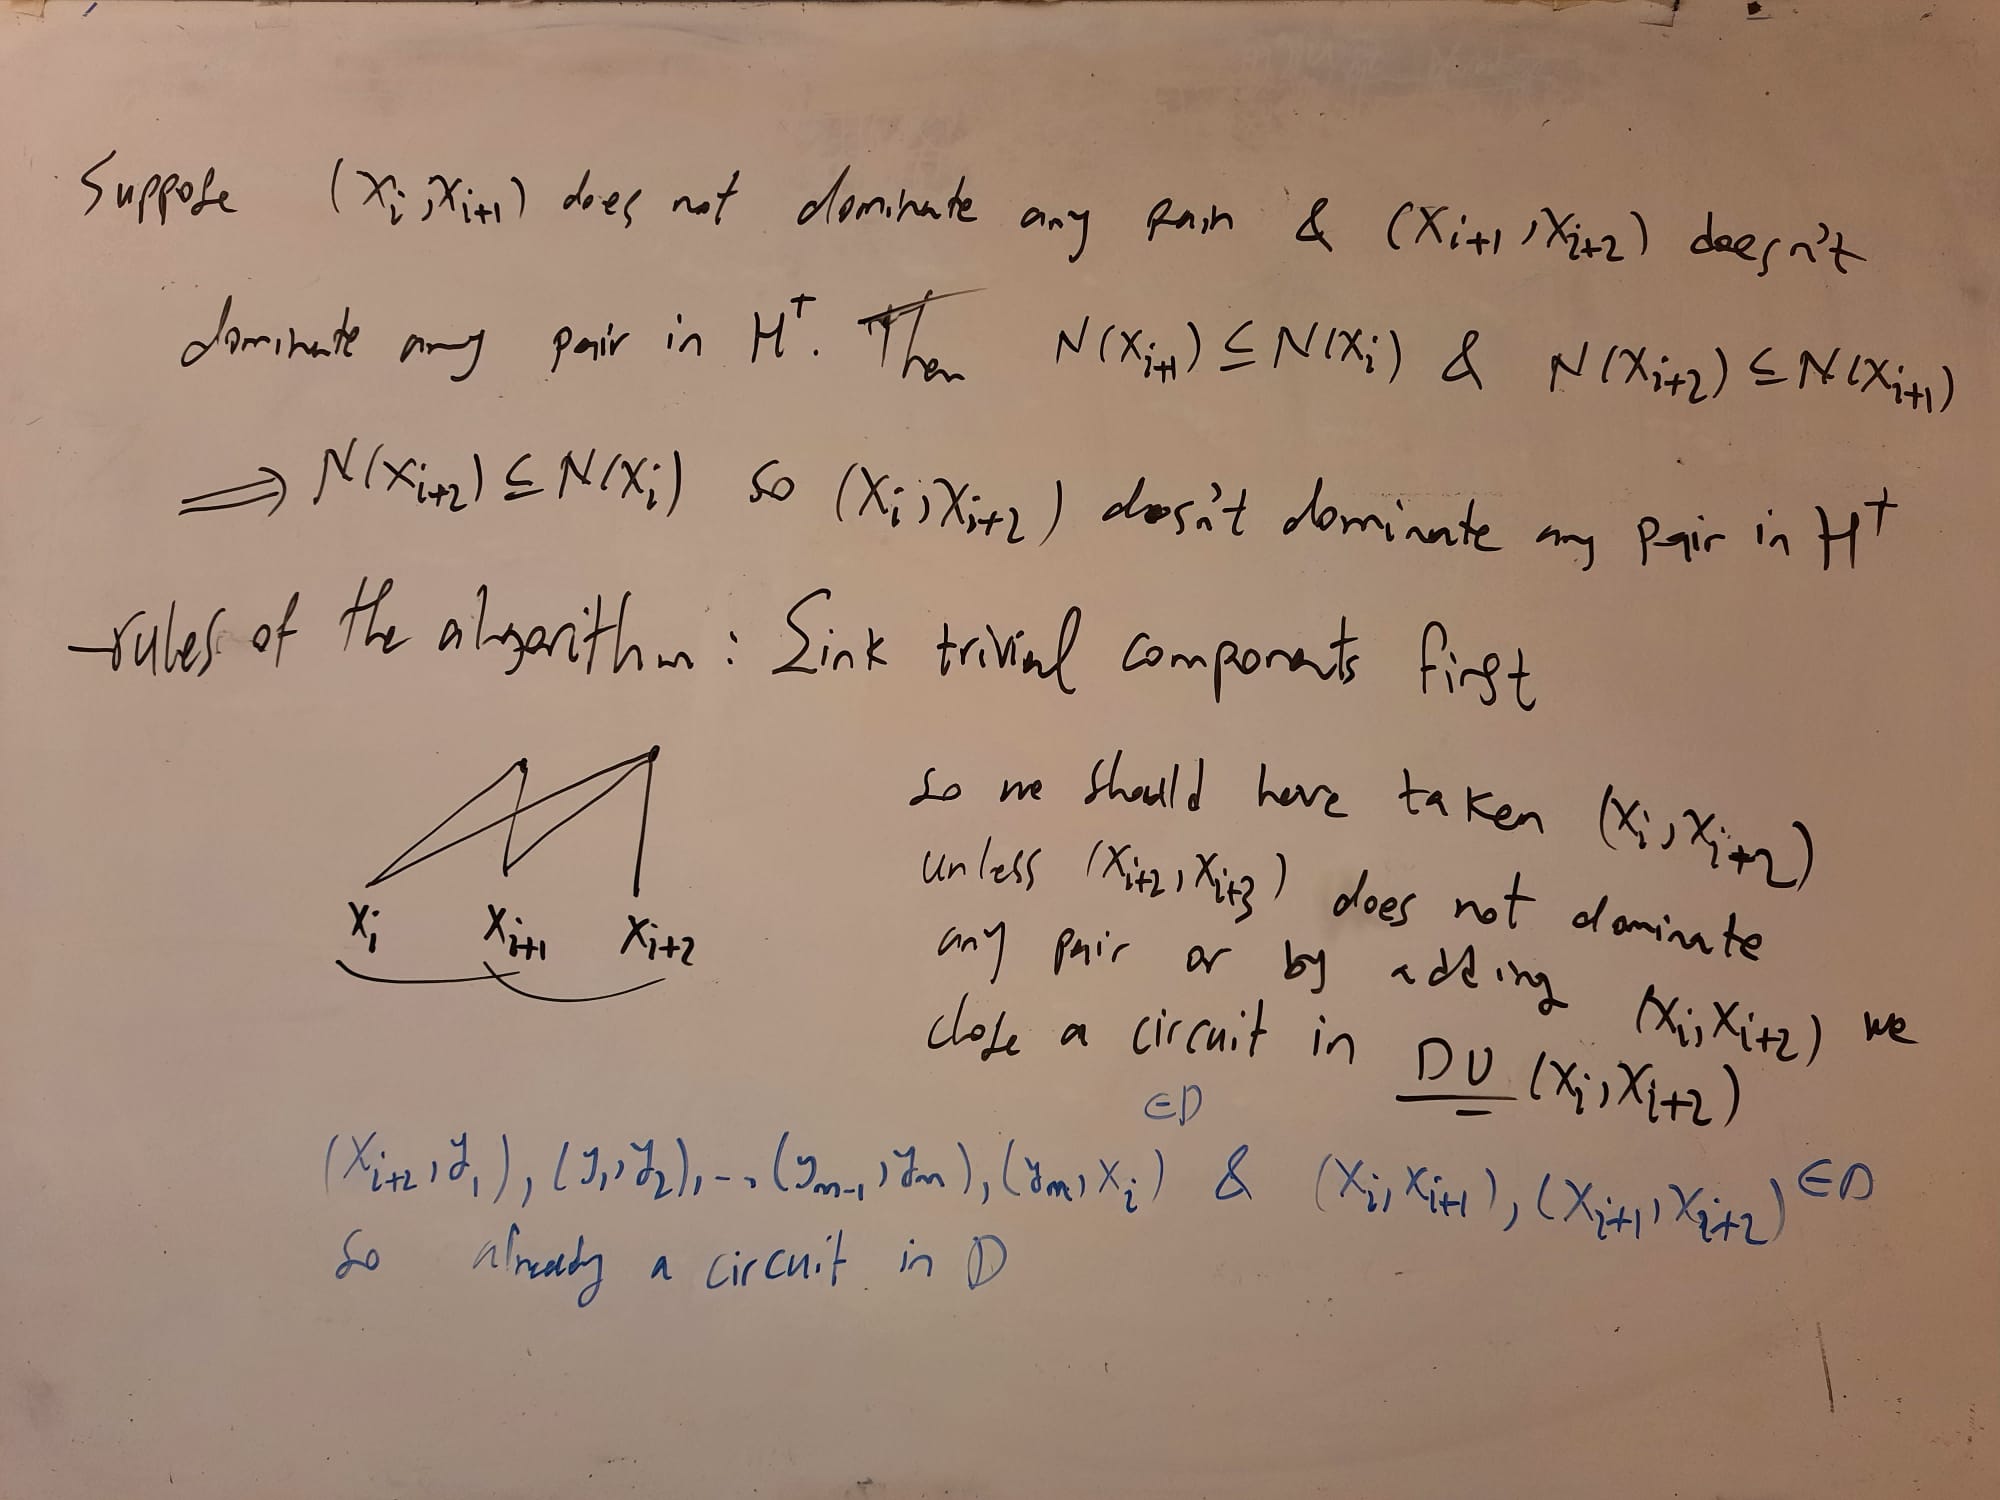 Suppose (Xi, Xi+1) does not dominate any pair & (Xi+1, Xi+2) doesn't
dominate any pair in H⁺. Then N(Xi+1) ⊆ N(Xi) & N(Xi+2) ⊆ N(Xi+1)
⟹ N(Xi+2) ⊆ N(Xi) so (Xi, Xi+2) doesn't dominate any pair in H⁺
-rules of the algorithm: Sink trivial components first
Xi Xi+1 Xi+2
so we should have taken (Xi, Xi+2)
unless (Xi+2, Xi+3) does not dominate
any pair or by adding (Xi, Xi+2) we
close a circuit in D ∪ (Xi, Xi+2)
∈D
(Xi+2, y1), (y1, y2), .., (ym-1, ym), (ym, Xi) & (Xi, Xi+1), (Xi+1, Xi+2) ∈D
so already a circuit in D